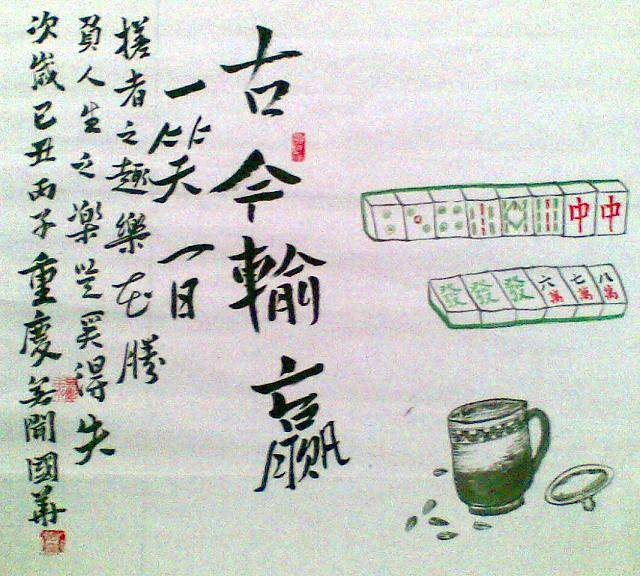 古今輸贏
一笑一日
搓者之趣樂在勝
負人生之樂豈冥得失
次歲己丑丙子重慶 開國華
中 中
發 發 發 六萬 七萬 八萬